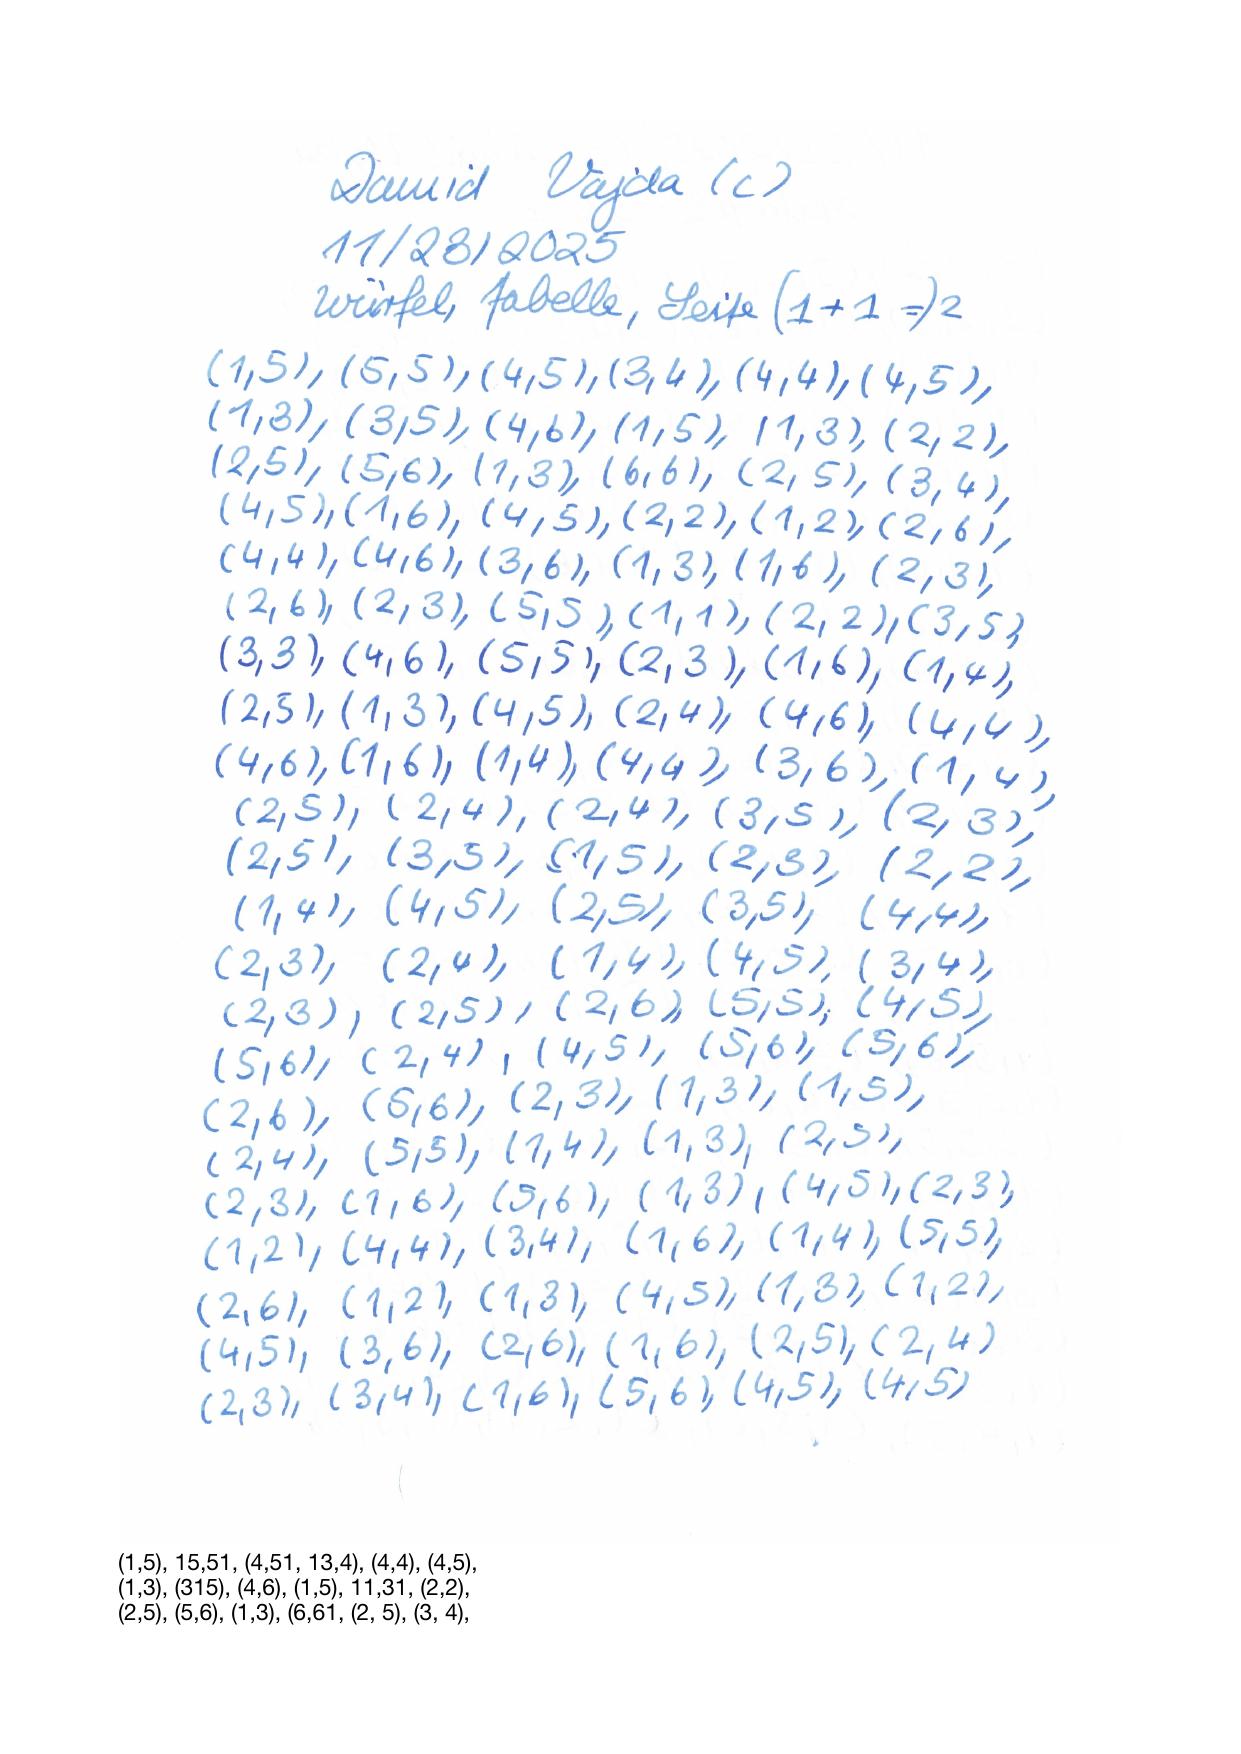 David Vajda (c)
11/28/2025
Würfel, Tabelle, Seite (1+1=)2
(1,5), (5,5), (4,5), (3,4), (4,4), (4,5),
(1,3), (3,5), (4,6), (1,5), (1,3), (2,2),
(2,5), (5,6), (1,3), (6,6), (2,5), (3,4),
(4,5), (1,6), (4,5), (2,2), (1,2), (2,6),
(4,4), (4,6), (3,6), (1,3), (1,6), (2,3),
(2,6), (2,3), (5,5), (1,1), (2,2), (3,5),
(3,3), (4,6), (5,5), (2,3), (1,6), (1,4),
(2,5), (1,3), (4,5), (2,4), (4,6), (4,4),
(4,6), (1,6), (1,4), (4,4), (3,6), (1,4),
(2,5), (2,4), (2,4), (3,5), (2,3),
(2,5), (3,5), (1,5), (2,3), (2,2),
(1,4), (4,5), (2,5), (3,5), (4,4),
(2,3), (2,4), (1,4), (4,5), (3,4),
(2,3), (2,5), (2,6), (5,5), (4,5),
(5,6), (2,4), (4,5), (5,6), (5,6),
(2,6), (6,6), (2,3), (1,3), (1,5),
(2,4), (5,5), (1,4), (1,3), (2,5),
(2,3), (1,6), (5,6), (1,3), (4,5), (2,3),
(1,2), (4,4), (3,4), (1,6), (1,4), (5,5),
(2,6), (1,2), (1,3), (4,5), (1,3), (1,2),
(4,5), (3,6), (2,6), (1,6), (2,5), (2,4)
(2,3), (3,4), (1,6), (5,6), (4,5), (4,5)
(1,5), 15,51, (4,51, 13,4), (4,4), (4,5),
(1,3), (315), (4,6), (1,5), 11,31, (2,2),
(2,5), (5,6), (1,3), (6,61, (2, 5), (3, 4),